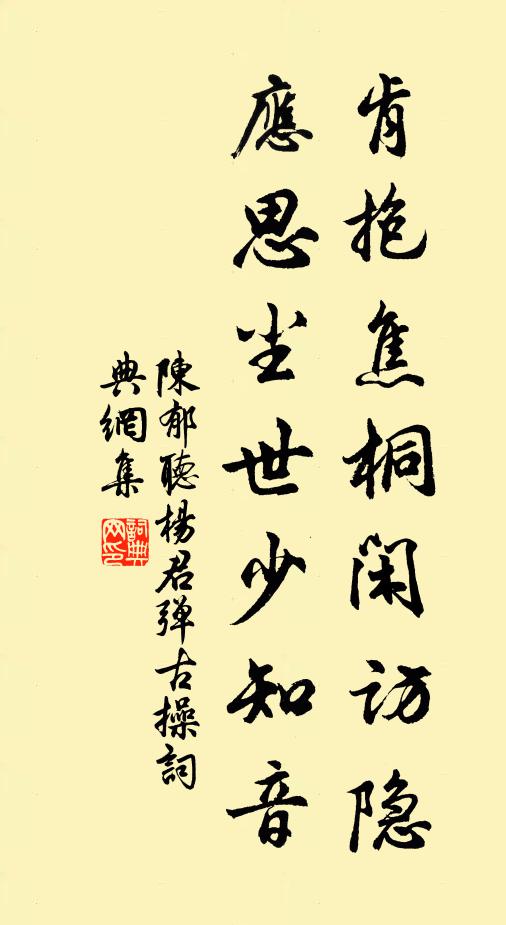 肯抱焦桐闲访隐
應思尘世少知音
陳郁聽楊君弹古操詞
典網集
詞典网印